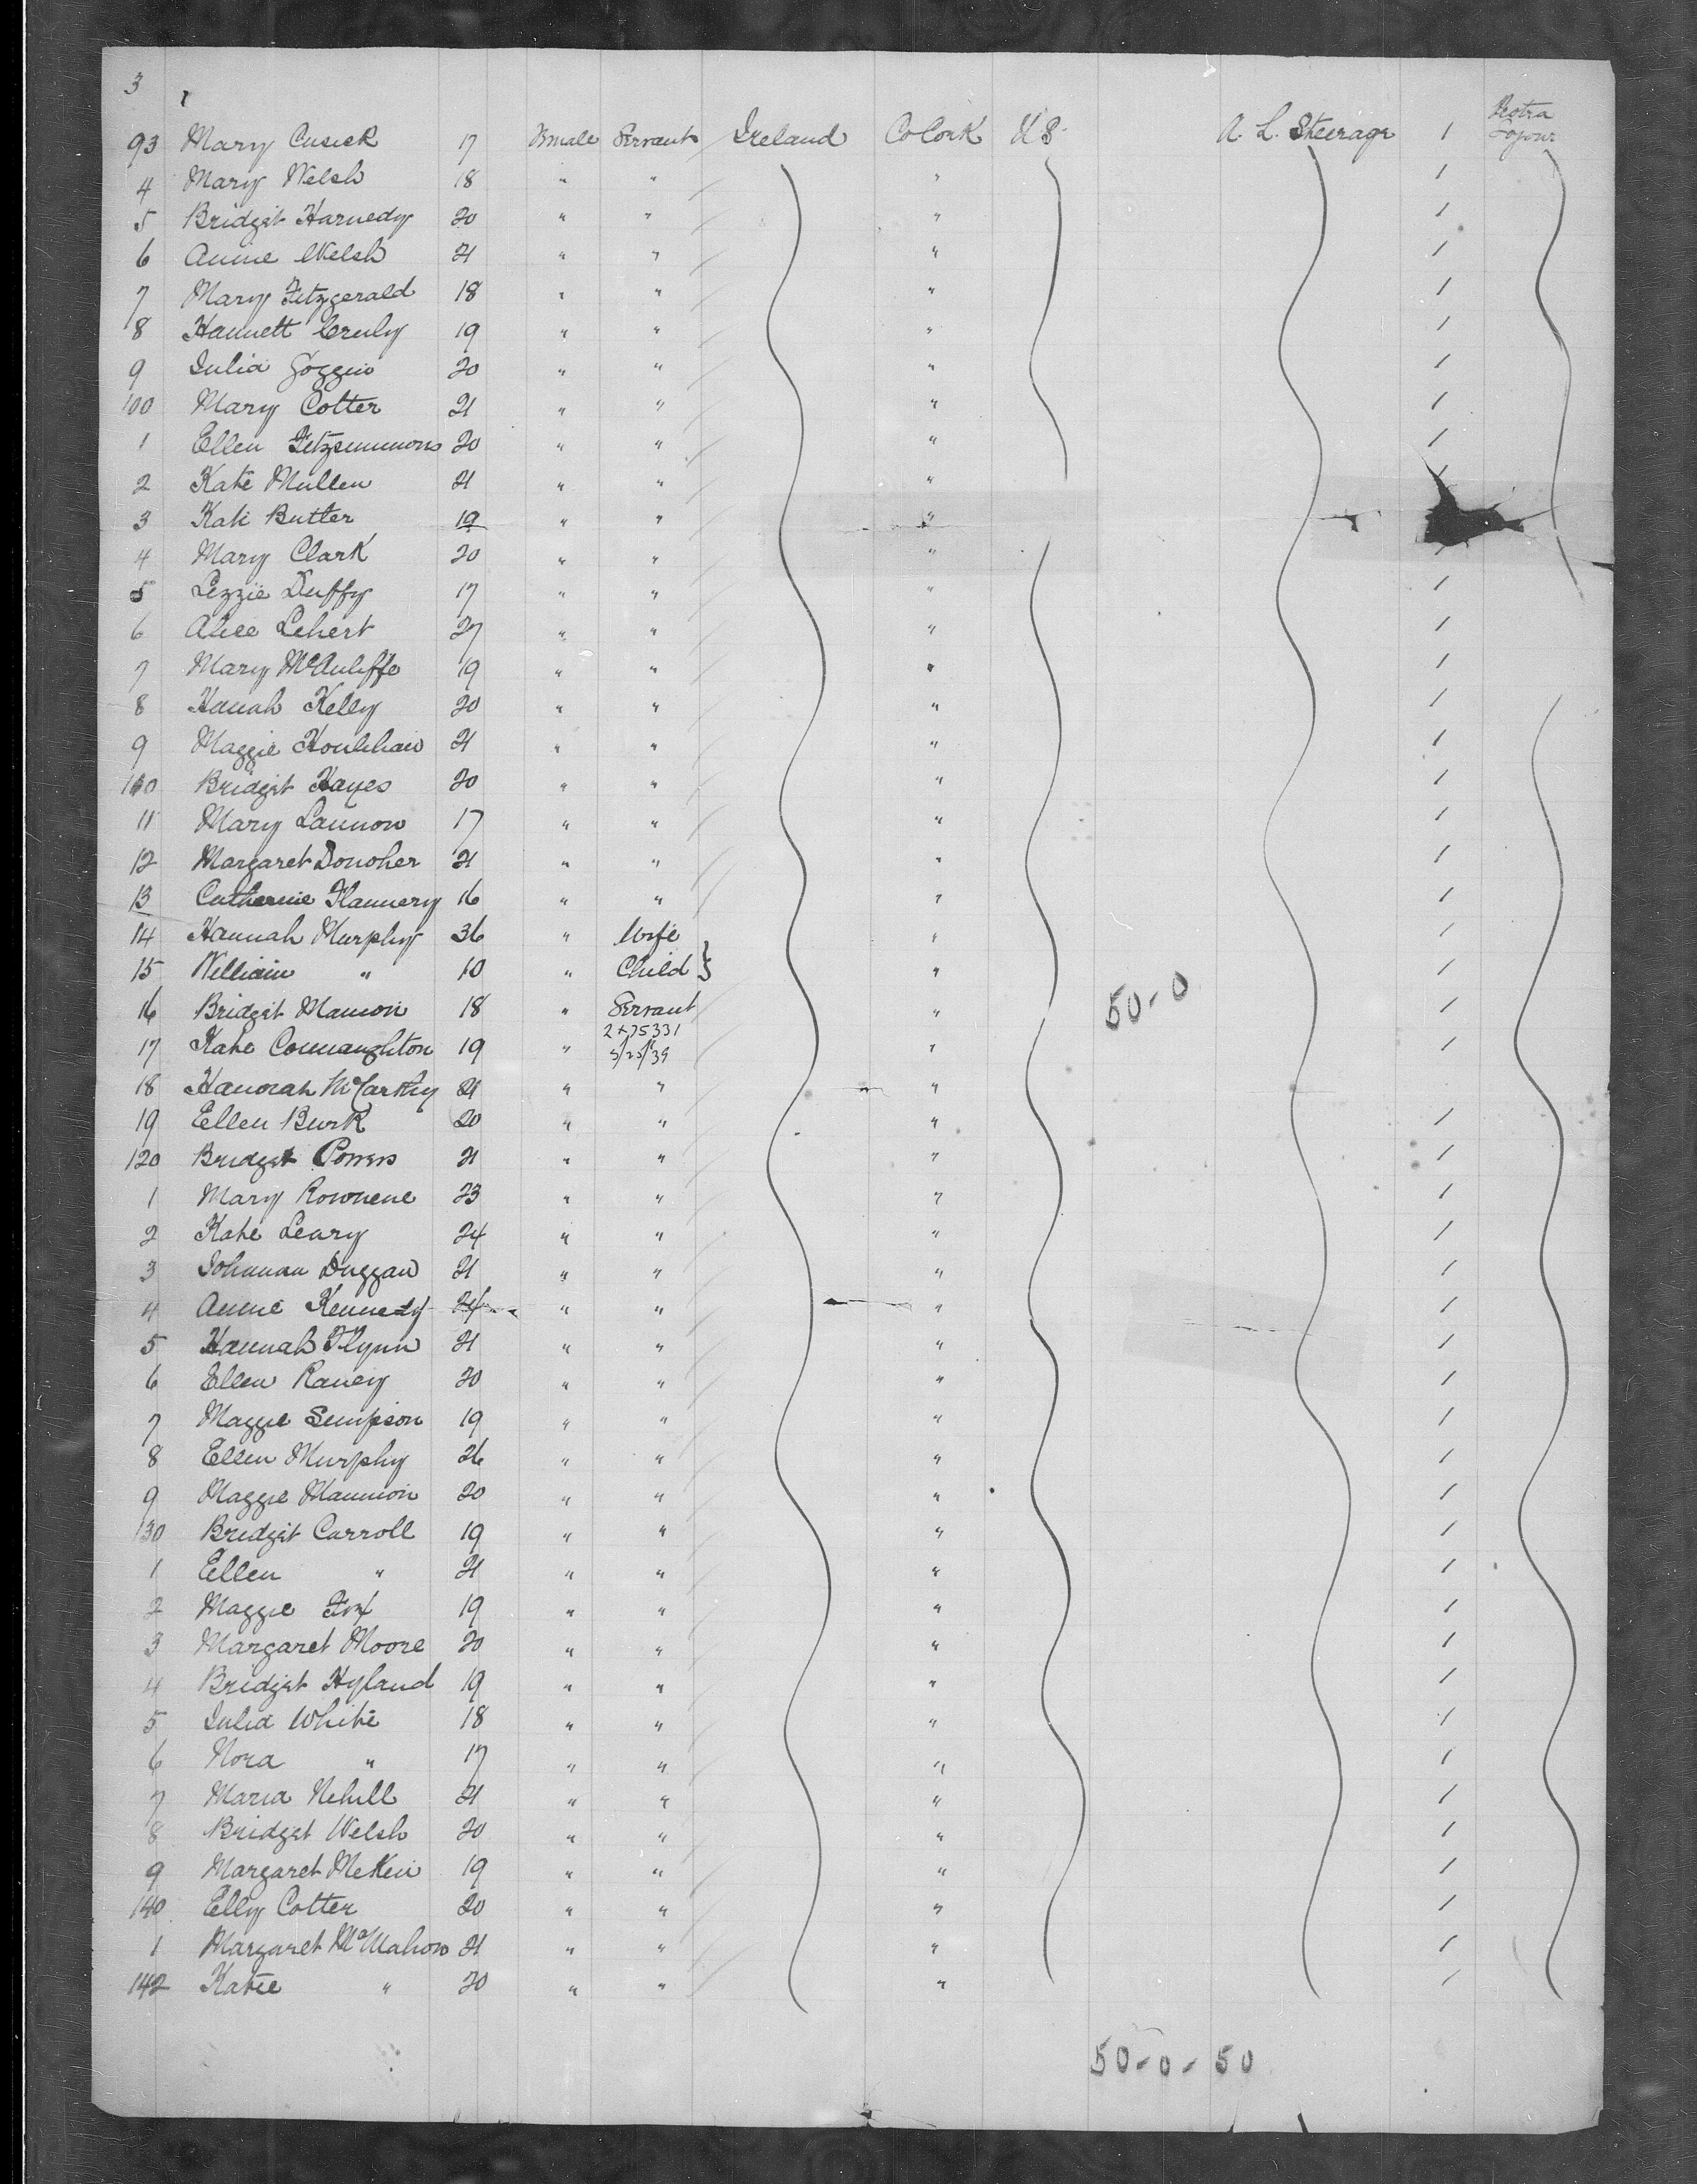 3
93 Mary Cusick 17 Female Servant Ireland Co Cork U S. A. L. Steerage 1
4 Mary Welsh 18 " " "
5 Bridget Harnedy 20 " " "
6 Annie Welsh 21 " " "
7 Mary Fitzgerald 18 " " "
8 Hannett Cruly 19 " " "
9 Julia Goggin 20 " " "
100 Mary Cotter 21 " " "
1 Ellen Fitzsimmons 20 " " "
2 Kate Mullen 21 " " "
3 Kate Butler 19 " " "
4 Mary Clark 20 " " "
5 Lizzie Duffy 17 " " "
6 Alice Lehert 27 " " "
7 Mary McAuliffe 19 " " "
8 Hanah Kelly 20 " " "
9 Maggie Houlihan 21 " " "
110 Bridget Hayes 20 " " "
11 Mary Lannon 17 " " "
12 Margaret Donoher 21 " " "
13 Catherine Flannery 16 " " "
14 Hannah Murphy 36 " Wife "
15 William " 10 " Child "
16 Bridget Mannion 18 " Servant " 50-0
2x75331
17 Kate Connaughton 19 " 5/25/39 "
18 Hanorah McCarthy 21 " " "
19 Ellen Burk 20 " " "
120 Bridget Powers 21 " " "
1 Mary 23 " " "
2 Kate Leary 24 " " "
3 Johanna Duggan 21 " " "
4 Annie Kennedy 24 " " "
5 Hannah Flynn 21 " " "
6 Ellen Raney 20 " " "
7 Maggie Simpson 19 " " "
8 Ellen Murphy 26 " " "
9 Maggie Mannion 20 " " "
130 Bridget Carroll 19 " " "
1 Ellen " 21 " " "
2 Maggie Fox 19 " " "
3 Margaret Moore 20 " " "
4 Bridget Hyland 19 " " "
5 Julia White 18 " " "
6 Nora " 17 " " "
7 Maria Nehill 21 " " "
8 Bridget Welsh 20 " " "
9 Margaret McKen 19 " " "
140 Elly Cotter 20 " " "
1 Margaret McMahon 21 " " "
142 Katie " 20 " " "
50-0-50